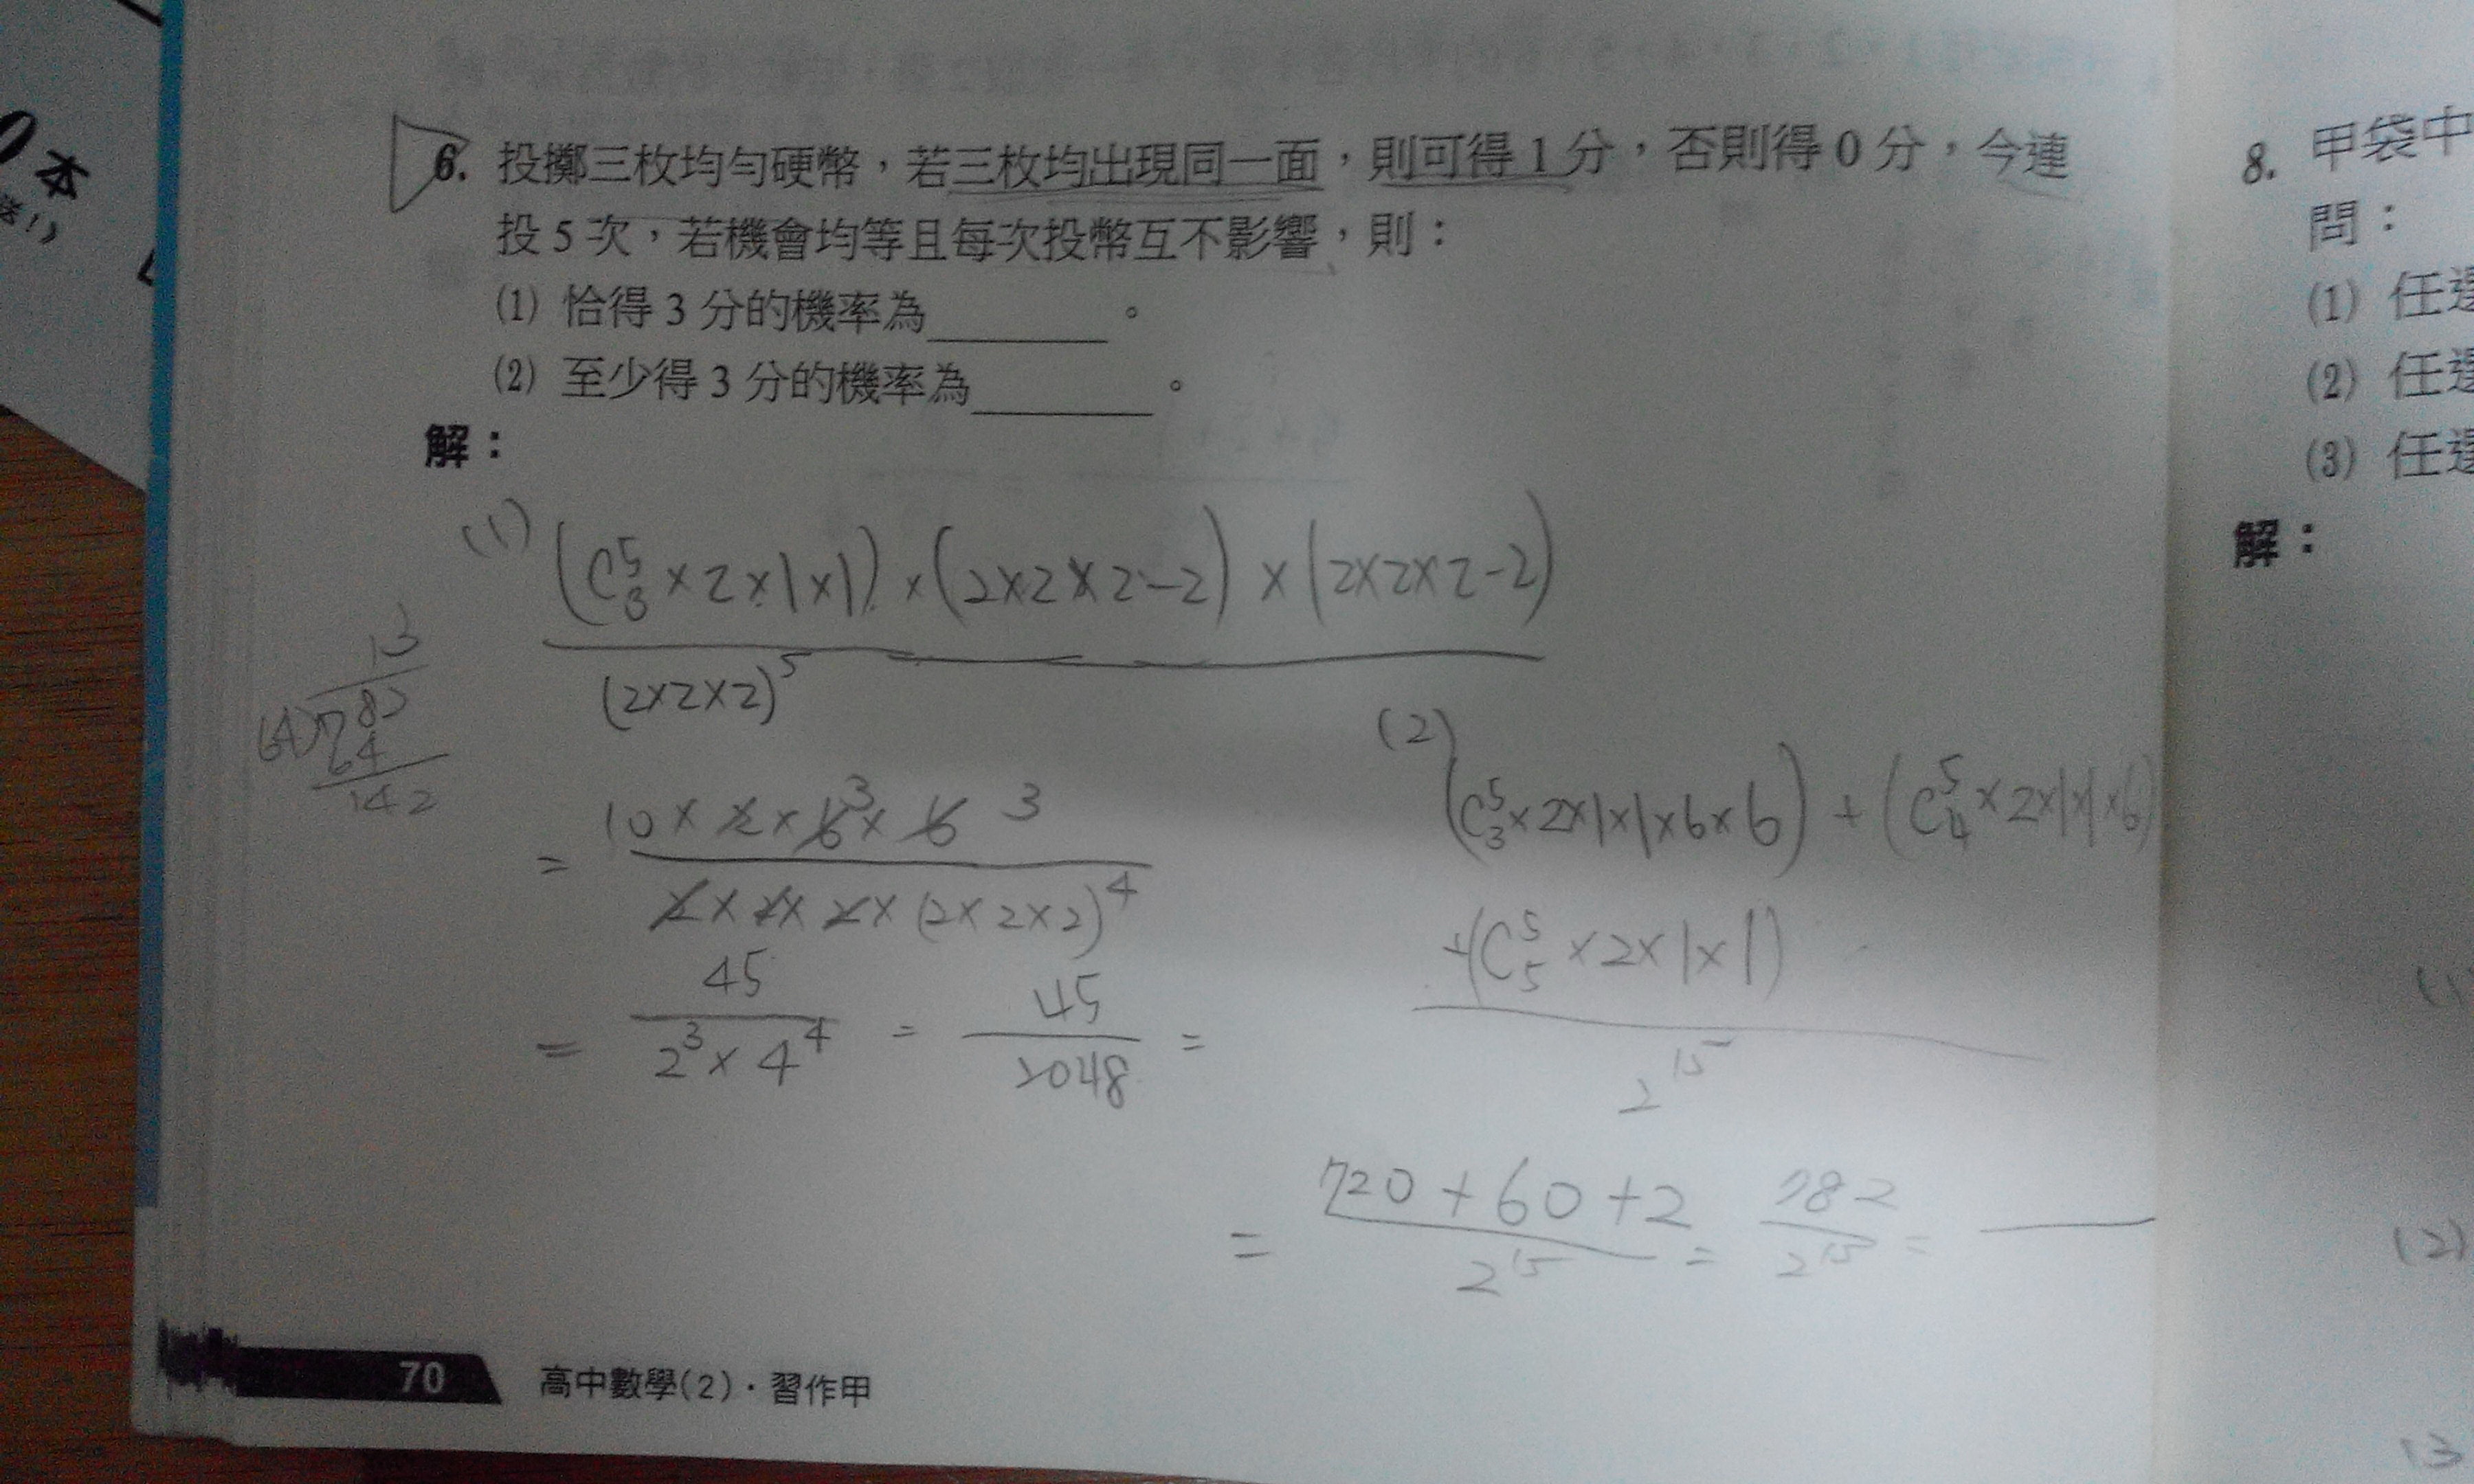 本
6. 投擲三枚均勻硬幣，若三枚均出現同一面，則可得 1 分，否則得 0 分，今連
投 5 次，若機會均等且每次投幣互不影響，則：
(1) 恰得 3 分的機率為______。
(2) 至少得 3 分的機率為______。
解：
(1) (C⁵₃×2×1×1)×(2×2×2-2)×(2×2×2-2)
(2×2×2)⁵
= 10×2×6³×6 3
2×2×2×(2×2×2)⁴
= 45/2³×4⁴ = 45/2048 =
13
64)782
64
142
(2) (C⁵₃×2×1×1×6×6)+(C⁵₄×2×1×1×6)
+(C⁵₅×2×1×1)
2¹⁵
= 720+60+2/2¹⁵ = 782/2¹⁵ =
70 高中數學(2)·習作甲
8. 甲袋中
問：
(1) 任選
(2) 任選
(3) 任選
解：
(1)
(2)
(3